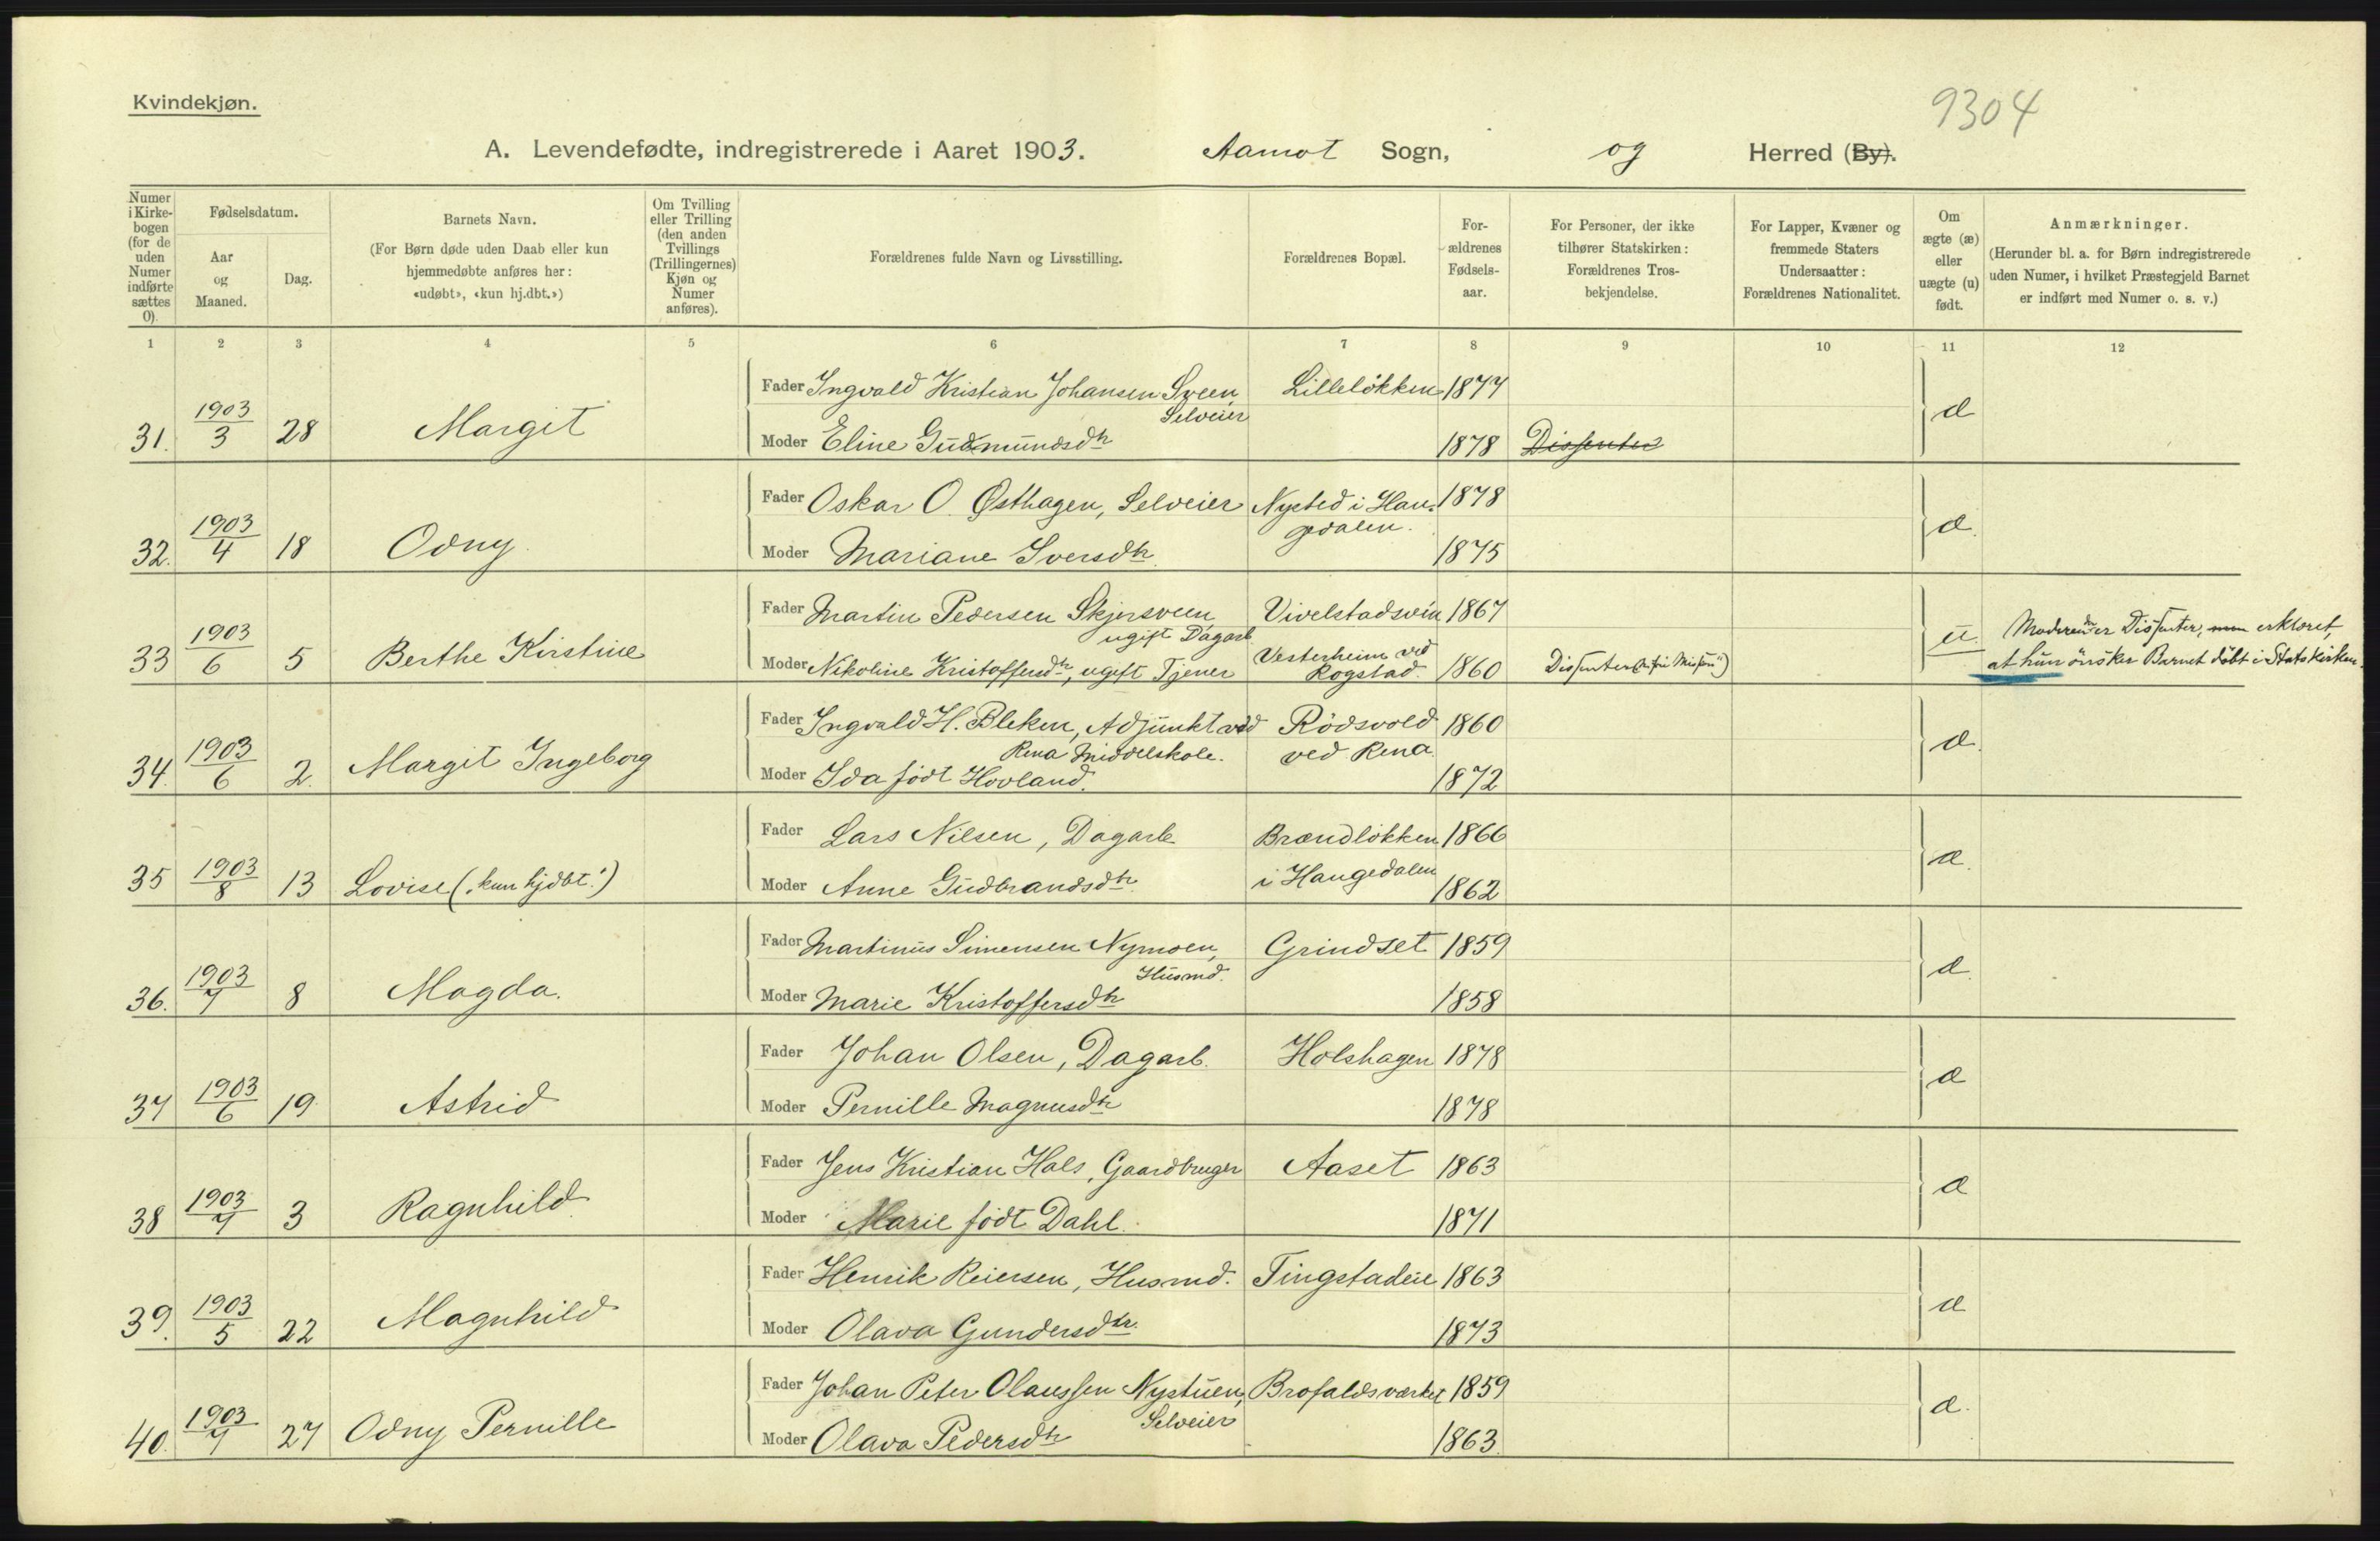 9304
Kvindekjøn.
A. Levendefødte, indregistrerede i Aaret 1903. Aamot Sogn, og Herred (By).
Numer i Kirkebogen (for de uden Numer indførte sættes 0).
Fødselsdatum.
Aar og Maaned.
Dag.
Barnets Navn.
(For Børn døde uden Daab eller kun
hjemmedøbte anføres her:
«udøbt», «kun hj.dbt.»)
Om Tvilling
eller Trilling
(den anden
Tvillings
(Trillingernes)
Kjøn og
Numer
anføres).
Forældrenes fulde Navn og Livsstilling.
Forældrenes Bopæl.
For-
ældrenes
Fødsels-
aar.
For Personer, der ikke
tilhører Statskirken:
Forældrenes Tros-
bekjendelse.
For Lapper, Kvæner og
fremmede Staters
Undersaatter:
Forældrenes Nationalitet.
Om
ægte (æ)
eller
uægte (u)
født.
Anmærkninger.
(Herunder bl. a. for Børn indregistrerede
uden Numer, i hvilket Præstegjeld Barnet
er indført med Numer o. s. v.)
1 2 3 4 5 6 7 8 9 10 11 12
31. 1903/3 28 Margit
Fader Ingvald Kristian Johansen Sveen, Lilleløkken 1877
Selveier
Moder Eline Gudmundsdtr 1878 Dissenter
æ
32. 1903/4 18 Odny
Fader Oskar O. Østhagen, Selveier Nysted i Hau- 1878
gedalen.
Moder Mariane Iversdtr. 1875
æ.
33 1903/6 5 Berthe Kirstine
Fader Martin Pedersen Skjersveen, Vivelstadsvéa 1867
ugift Dagarb.
Moder Nikoline Kristoffersdtr, ugift Tjener Vesterheim ved
Rogstad. 1860 Dissenter
u. Moderen er Dissenter, men erklæret,
at hun ønsker Barnet døbt i Statskirken.
34. 1903/6 2. Margit Ingeborg
Fader Ingvald H. Bleken, Adjunkt ved Rødsvold 1860
Rena Middelskole. ved Rena.
Moder Ida født Hovland. 1872
æ.
35 1903/8 13 Lovise („kun hjdbt.")
Fader Lars Nilsen, Dagarb Brændløkken 1866
Moder Anne Gudbrandsdtr. i Haugedalen 1862
æ.
36. 1903/7 8 Magda.
Fader Martinus Simensen Nymoen, Grindset 1859
Husmd.
Moder Marie Kristoffersdtr 1858
æ.
37 1903/6 19 Astrid
Fader Johan Olsen, Dagarb. Holshagen 1878
Moder Pernille Magnusdtr 1878
æ
38 1903/7 3 Ragnhild
Fader Jens Kristian Hals, Gaardbruger Aaset 1863
Moder Marie født Dahl. 1871
æ
39. 1903/5 22 Magnhild
Fader Henrik Reiersen, Husmd. Tingstadeie 1863
Moder Olava Gundersdtr. 1873
æ
40. 1903/7 27 Odny Pernille
Fader Johan Peter Olaussen Nystuen, Brofaldsværket 1859
Selveier
Moder Olava Pedersdtr 1863.
æ.